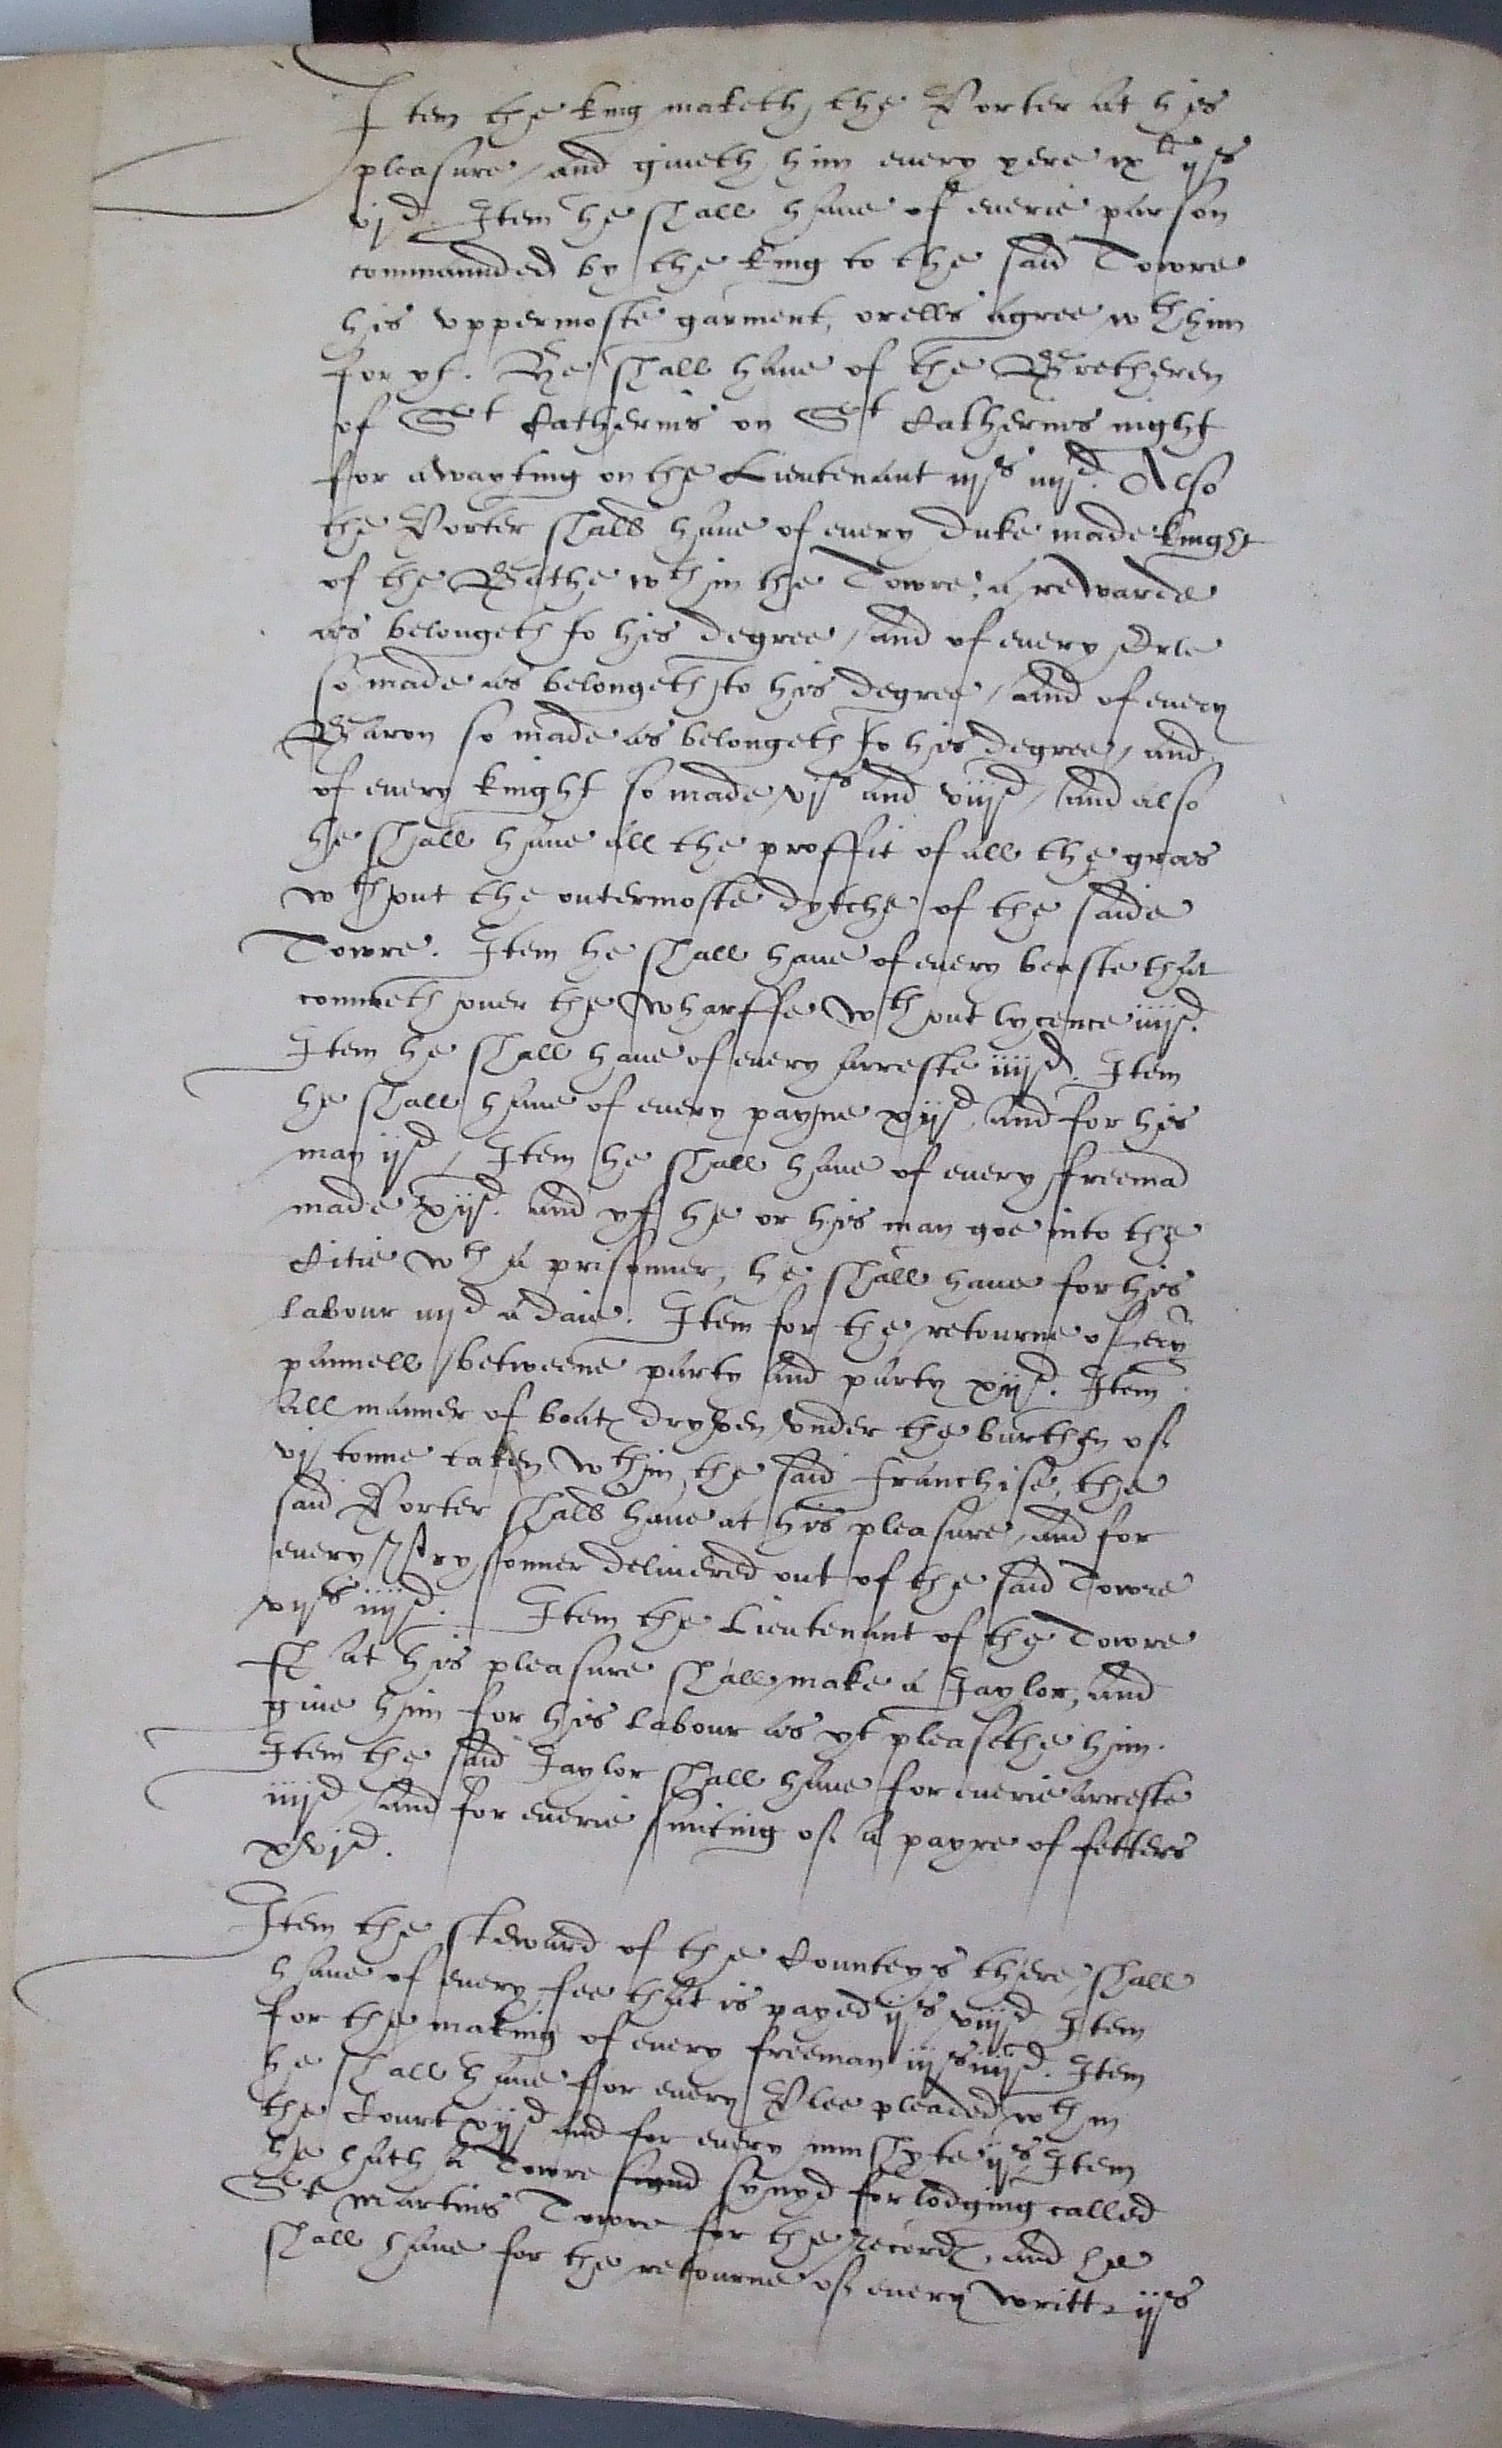 Item the king maketh the Porter at his
pleasure, and giueth him euery yere ixli ijs
vjd. Item he shall haue of euerie parson
commaunded by the king to the said Towre
his vppermoste garment, orells agree wth him
for yt. He shall haue of the Bretheren
of St Catherins on St Catherins night
for awayting on the Lieutenant iijs iiijd. Also
the Porter shall haue of euery Duke made knight
of the Bathe wthin the Towre, a rewarde
as belongeth to his degree, and of euery Erle
so made as belongeth to his degree, and of euery
Baron so made as belongeth to his degree, and
of euery knight so made vjs and viijd, and also
he shall haue all the proffit of all the gras
wthout the outermoste dytche of the saide
Towre. Item he shall haue of euery beaste that
commeth ouer the wharffe wthout lycence iiijd.
Item he shall haue of euery arreste iiijd. Item
he shall haue of euery payne xijd, and for his
man ijd, Item he shall haue of euery freemā
made xijd. and yf he or his man goe into the
Citie wth a prisonner, he shall haue for his
labour iiijd a daie. Item for the retourne of eūy
pannell betweene party and party xijd. Item
all manner of boats dryven vnder the burthen of
vj tonne taken wthin the said franchise, the
said Porter shall haue at his pleasure, and for
euery prysonner deliuered out of the said Towre
iiijd. Item the Lieutenant of the Towre
at his pleasure shall make a Jaylor, and
giue him for his labour as yt pleasethe him.
Item the said Jaylor shall haue for euerie arreste
iiijd, and for euerie smiting of a payre of fetters
xvjd.
Item the steward of the Counteys there shall
haue of euery fee that is payed ijs viijd Item
for the making of euery freeman iijs iiijd. Item
he shall haue for euery Plee pleaded wthin
the Court xijd and for euery ijs, Item
he hath a Towre synyd for lodging called
St Martins Towre for the records, and he
shall haue for the retourne of euery writt ijs